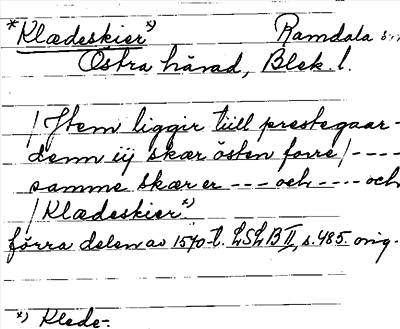 *Klædeskier*) Ramdala sn
Östra härad, Blek. l.
/Jtem liggir tiill prestegaar-
denn iij skær östen forre/----
samme skær er --- och ---- och
/Klædeskier*)
förra delen av 1570-t. LSLB II, s. 485. orig.
*) Klede-.